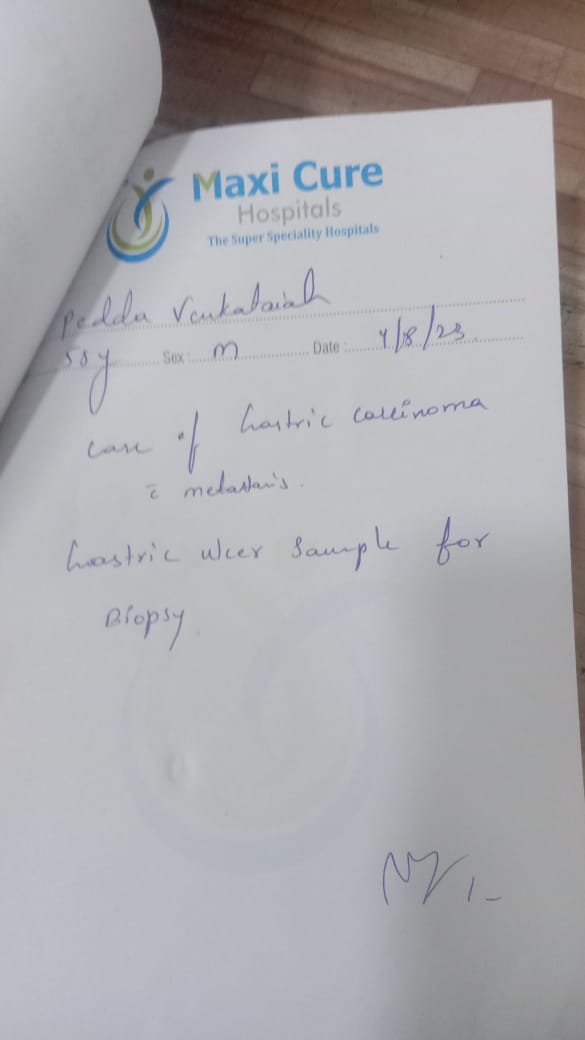 Maxi Cure
Hospitals
The Super Speciality Hospitals
Pedda Venkataiah
55y Sex : M Date : 4/8/23
Case of Gastric carcinoma
c̄ metastasis.
Gastric ulcer sample for
Biopsy